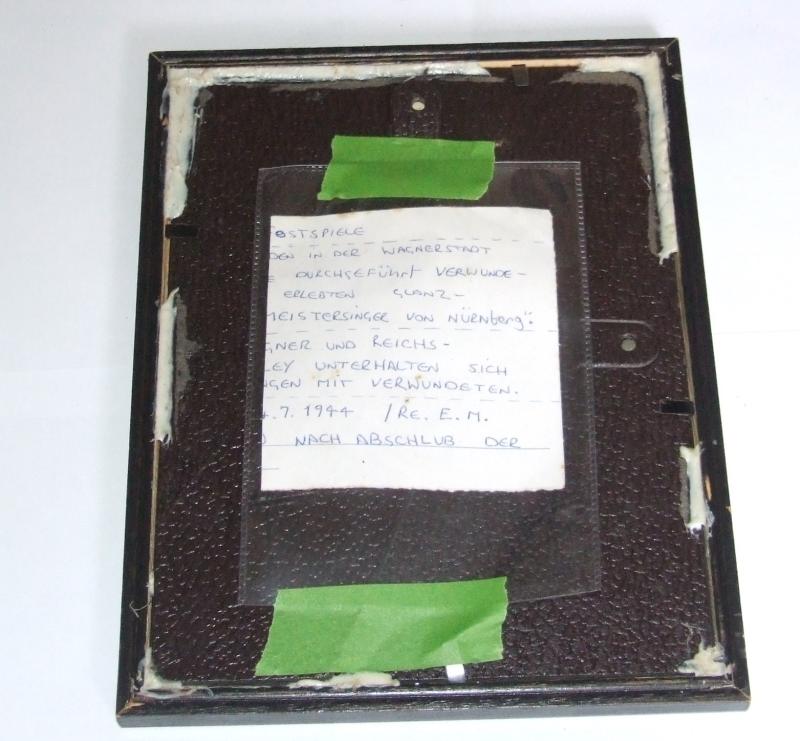 ESTSPIELE
DEN IN DER WAGNERSTADT
E DURCHGEFÜHRT VERWUNDE-
ERLEBTEN GLANZ-
MEISTERSINGER VON NÜRNBERG".
GNER UND REICHS-
LEY UNTERHALTEN SICH
NGEN MIT VERWUNDETEN.
4.7.1944 /RE. E.M.
NACH ABSCHLUB DER